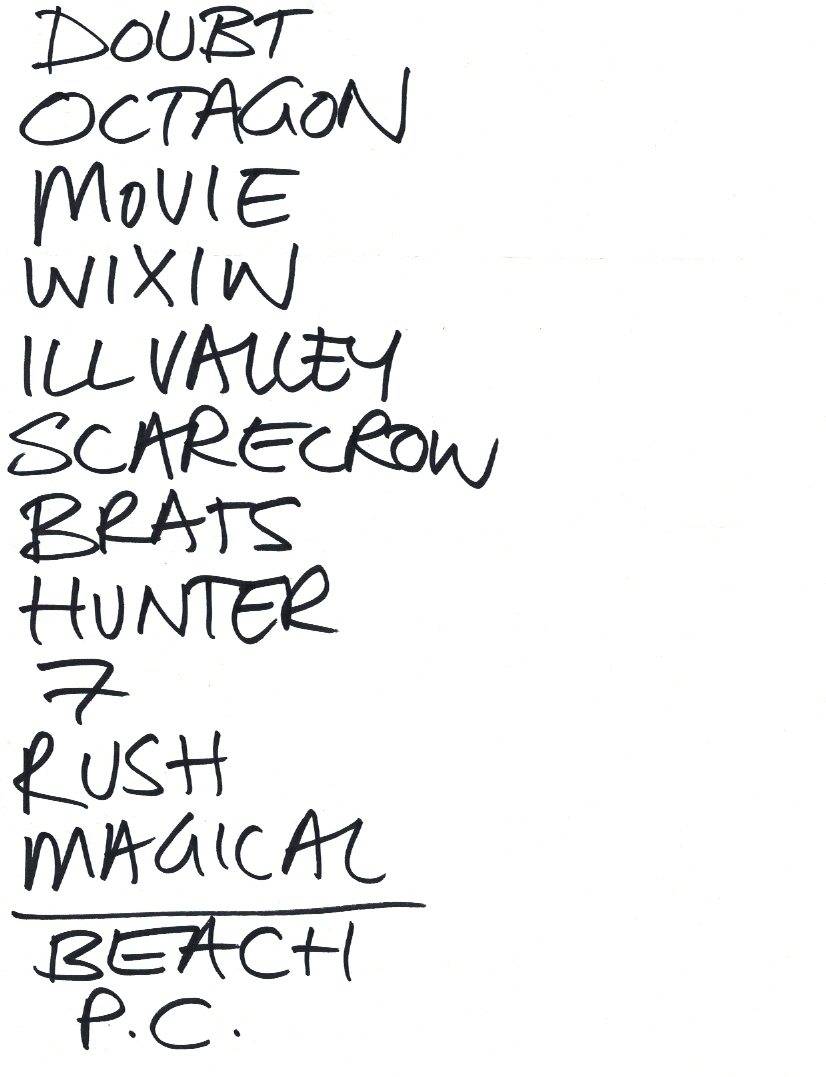 DOUBT
OCTAGON
MOVIE
WIXIW
ILL VALLEY
SCARECROW
BRATS
HUNTER
7
RUSH
MAGICAL
BEACH
P.C.